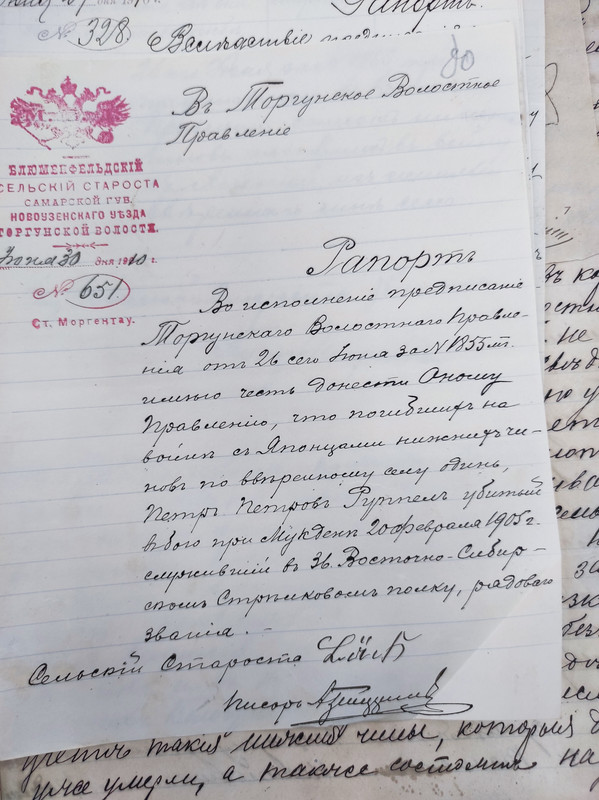 № 328
Рапортъ.
Вслѣдствіе
80
Въ Торгунское Волостное
Правленіе
М.
БЛЮМЕНФЕЛЬДСКІЙ
СЕЛЬСКІЙ СТАРОСТА
САМАРСКОЙ ГУБ.
НОВОУЗЕНСКАГО УѢЗДА
ТОРГУНСКОЙ ВОЛОСТИ.
Іюня 30 дня 1910 г.
№ 651.
Ст. Моргентау.
Рапортъ
Во исполненіе предписанія
Торгунскаго Волостнаго Правле-
нія отъ 26 сего Іюня за № 1855мъ.
имѣю честь донести Оному
Правленію, что погибшихъ на
войнѣ съ Японцами нижнихъ чи-
новъ по ввѣренному селу одинъ,
Петръ Петровъ Руппель убитый
въ бою при Мукденѣ 20 февраля 1905 г.
служившій въ 36 Восточно-Сибир-
скомъ Стрѣлковомъ полку, рядоваго
званія. -
Сельскій Староста
Писарь
учетъ такія нижніе чины, которые
уже умерли, а также состоящия на